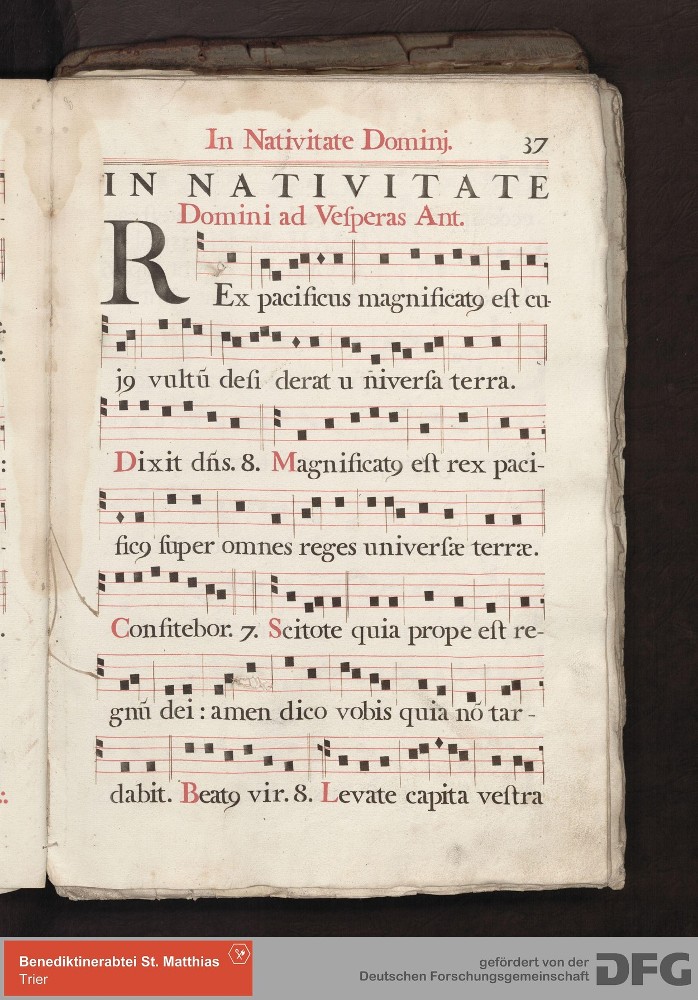 In Nativitate Dominj. 37
IN NATIVITATE
Domini ad Veſperas Ant.
REx pacificus magnificatꝯ eſt cu-
jꝯ vultū deſi derat u niverſa terra.
Dixit dn̄s. 8. Magnificatꝯ eſt rex paci-
ficꝯ ſuper omnes reges univerſæ terræ.
Confitebor. 7. Scitote quia prope eſt re-
gnū dei : amen dico vobis quia nō tar -
dabit. Beatꝯ vir. 8. Levate capita veſtra
Benediktinerabtei St. Matthias
Trier
gefördert von der
Deutschen Forschungsgemeinschaft DFG